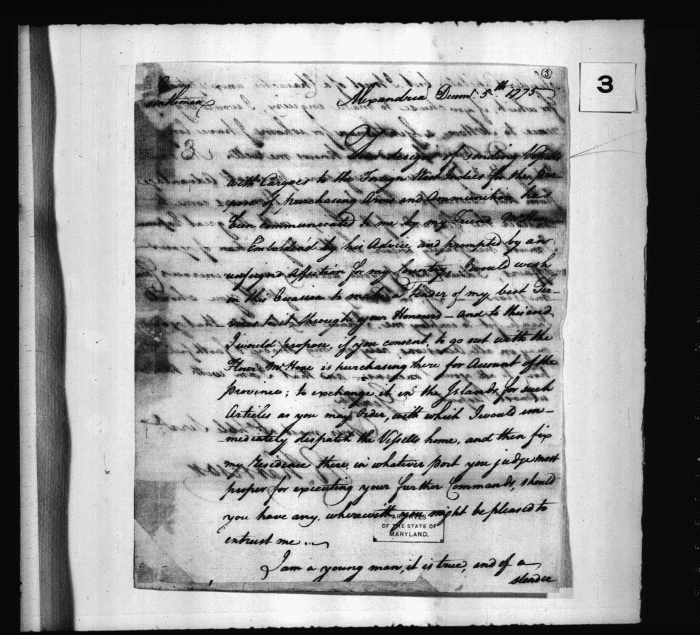 (3)
3
Gentlemen Alexandria Decemr. 5th 1775
3
The design of sending Vessells
with Cargoes to the Foreign West Indies for the pur-
pose of purchasing Arms and Ammunition has
been communicated to me by my Friend
Emboldened by his Advice, and prompted by an
unfeigned Affection for my Country, I would wish
in this Occasion to make a Tender of my best Ser-
vices to it through your Honours – and to this end,
I would propose, if you consent, to go out with the
Flour Mr Hooe is purchasing here for Account of the
Province; to exchange it in the Islands for such
Articles as you may Order, with which I would im-
mediately despatch the Vessells home, and then fix
my Residence there, in whatever Port you judge most
proper for executing your further Commands, should
you have any, wherewith you might be pleased to
entrust me. –
ARCHIVES
OF THE STATE OF
MARYLAND.
I am a young man, it is true, and of a
slender